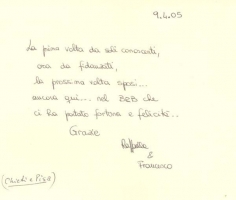 9.4.05
La prima volta da soli conoscenti,
ora da fidanzati,
la prossima volta sposi...
ancora qui... nel B&B che
ci ha portato fortuna e felicità..
Grazie
Raffaella
&
Francesco